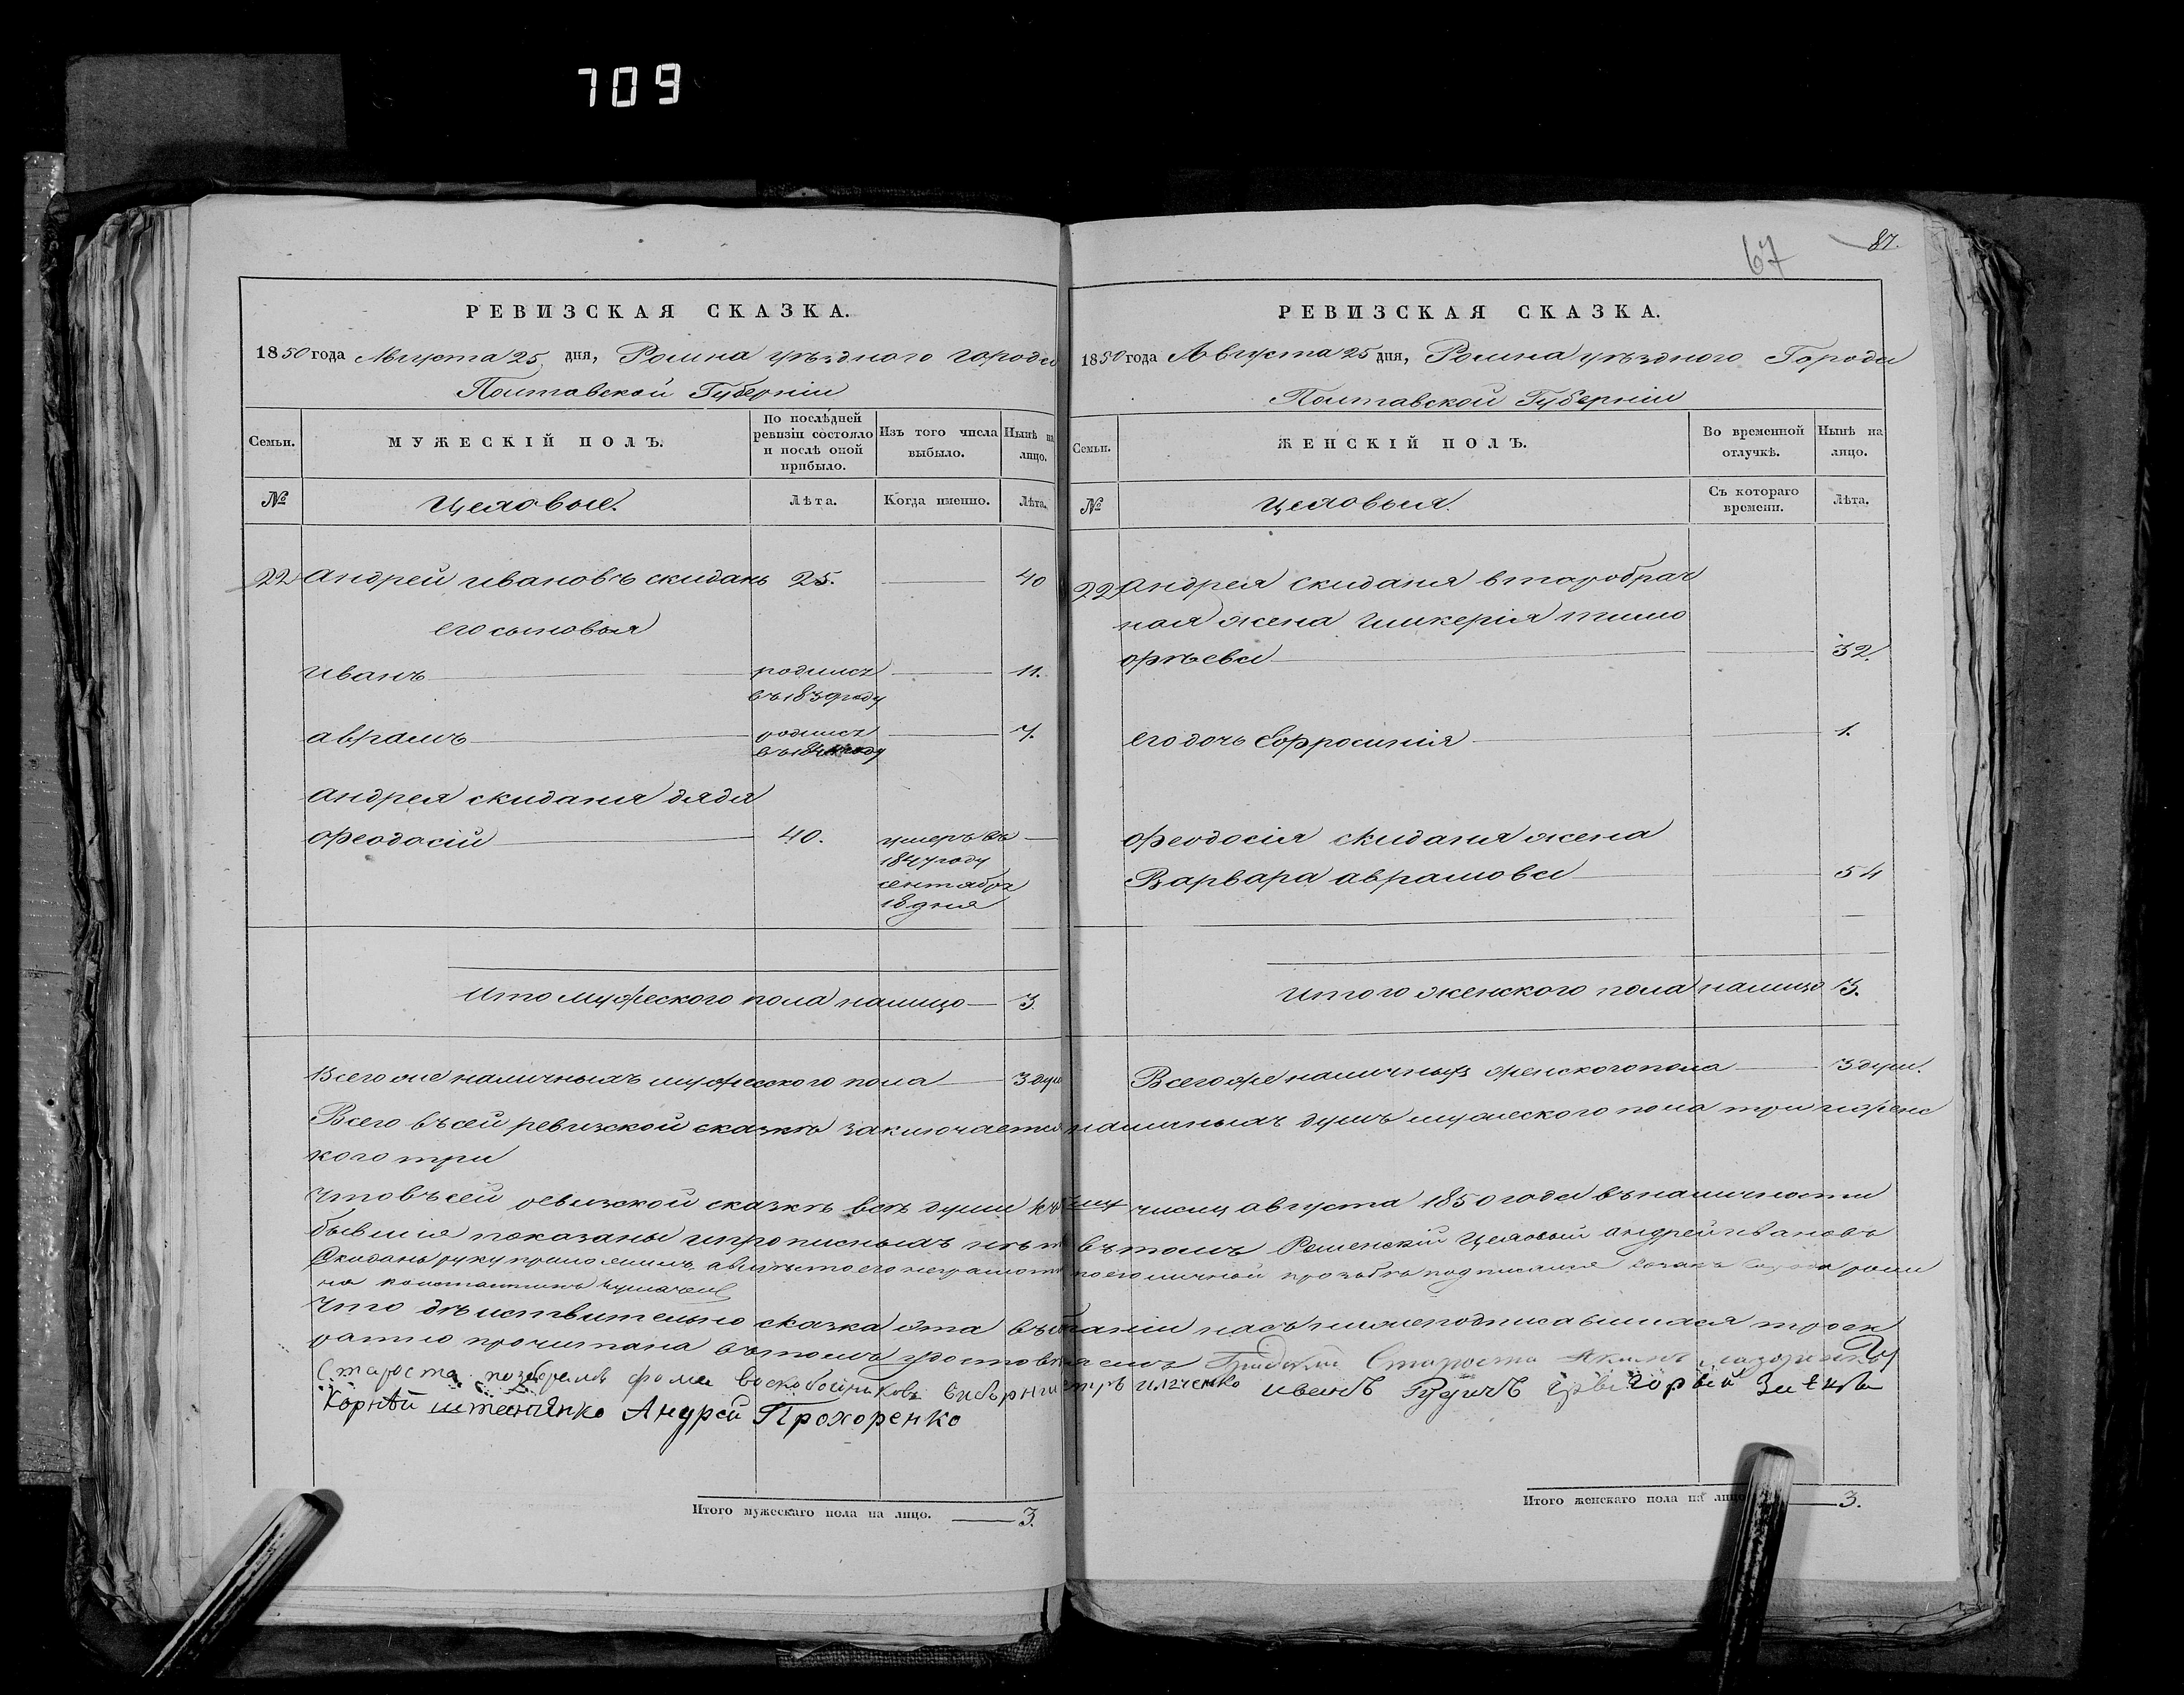 709
РЕВИЗСКАЯ СКАЗКА.
1850 года Августа 25 дня, Ромна уѣзднаго города
Полтавской Губерніи
Семьи.
МУЖЕСКІЙ ПОЛЪ.
По послѣдней ревизіи состояло и послѣ оной прибыло.
Изъ того числа выбыло.
Нынѣ на лицо.
№
Цеховые.
Лѣта.
Когда именно.
Лѣта.
22 Андрей Ивановъ Скидань 25. 40
его сыновья
Иванъ родился 11.
въ 1839 году
Аврамъ родился 7.
Андрея Скиданя дядя
Феодосій 40. умеръ въ
1847 году
сентября
18 дня
Итого мужеского пола налицо 3
Всего же наличныхъ мужеского пола 3 душ
67
87.
РЕВИЗСКАЯ СКАЗКА.
1850 года Августа 25 дня, Ромна уѣзднаго Города
Полтавской Губерніи
Семьи.
ЖЕНСКІЙ ПОЛЪ.
Во временной отлучкѣ.
Нынѣ на лицо.
№
Цеховыя.
Съ котораго времени.
Лѣта.
22 Андрея Скиданя второбрач
ная жена Гликерія Тимо
фѣева 32.
его дочь Ефросинія 1.
Феодосія Скиданя жена
Варвара Аврамова 54
Итого женского пола налицо 3.
Всего же наличныхъ женского пола 3 душ.
Всего въ сей ревизской сказкѣ заключается наличныхъ душъ мужеского пола три и женс
кого три
Что въ сей ревизской сказкѣ всѣ души числу августа 1850 года въ наличности
бывшія показаны и прописныхъ нѣтъ въ томъ Роменскій Цеховый Андрей Ивановъ
Скидань руку приложилъ а вмѣсто его неграмот по его личной прозьбѣ подписался козакъ Ром
на Константинъ
Что дѣйствительно сказка эта въ собраніи насъ нижеподписавшихся троек
ратно прочитана въ томъ удостовѣряемъ Староста
Староста Фома Воскобойниковъ Илченко Иванъ Рудичъ
Корнѣй Андрей Прохоренко
Итого мужескаго пола на лицо. 3.
Итого женскаго пола на лицо 3.